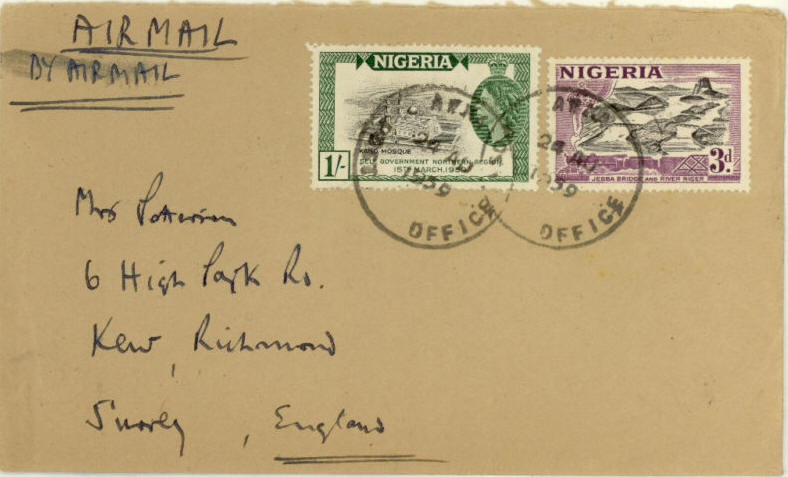 AIRMAIL
BY AIRMAIL
NIGERIA
KANO MOSQUE
SELF GOVERNMENT NORTHERN REGION
15TH MARCH, 1959
1/-
NIGERIA
3d.
JEBBA BRIDGE AND RIVER NIGER
24
1959
OFFICE
24
1959
OFFICE
Mrs Patterson
6 High Park Rd.
Kew, Richmond
Surrey, England